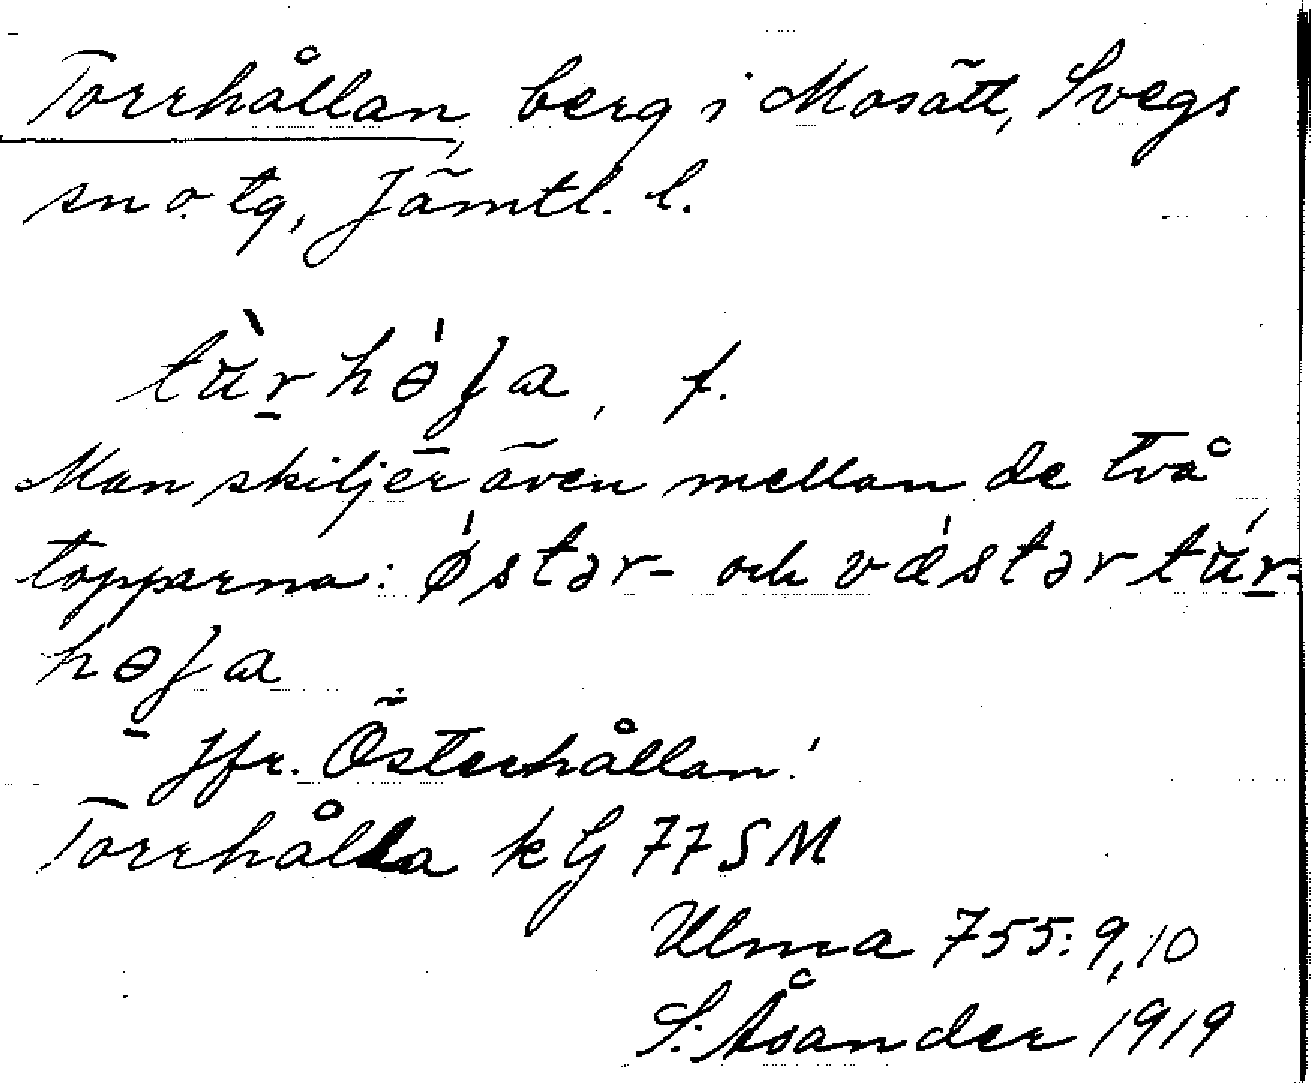 Torrhållan, berg i Mosätt, Svegs
sn o. tg, Jämtl. l.
tùr̠hɵ́ʃa, f.
Man skiljer även mellan de två
topparna: ǿstər- och vǽstərtúr̠-
hɵʃa
Jfr. Österhållan!
Torrhålla k G 77 SM
Ulma 755:9,10
S. Åsander 1919